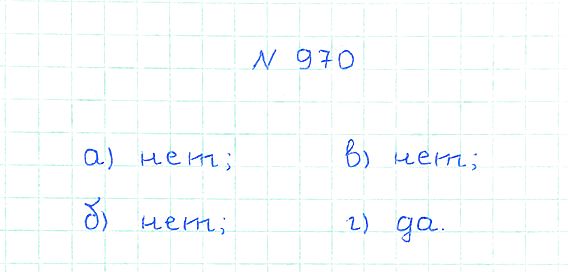 N 970
а) нет; в) нет;
б) нет; г) да.